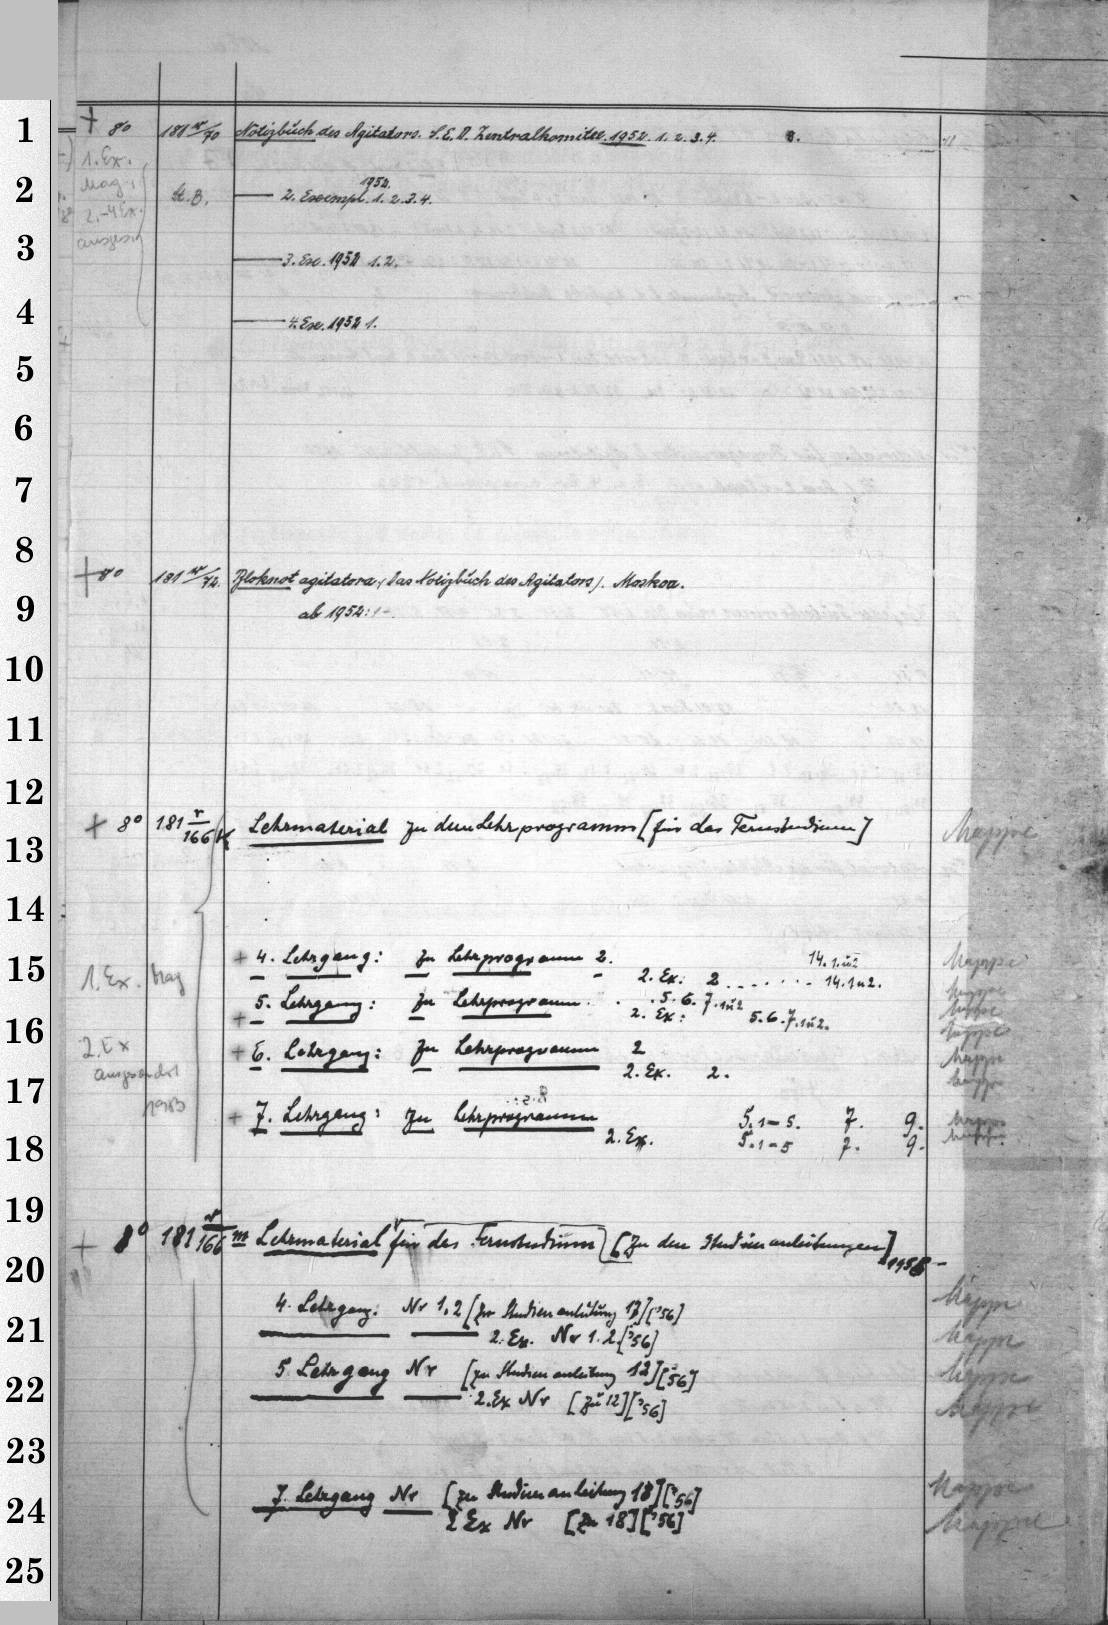 1
+ 8° 181 r/70 Notizbuch des Agitators. S.E.D. Zentralkomitee. 1952. 1. 2. 3. 4. 8.
1. Ex.
Mag.
2 St. B. — 2. Exempl. 1952. 1. 2. 3. 4.
2.-4 Ex.
ausges.
3 — 3. Ex. 1952 1. 2.
4 — 4. Ex. 1952 1.
5
6
7
8
+ 8° 181 r/72. Bloknot agitatora, (das Notizbuch des Agitators). Moskva.
9 ab 1952: 1 -
10
11
12
+ 8° 181 r/166 k Lehrmaterial zu dem Lehrprogramm [für das Fernstudium] Mappe
13
14
15 + 4. Lehrgang: zu Lehrprogramm 2. 14. 1. u 2 Mappe
1. Ex. Mag 2. Ex: 2 . . . . . . - 14. 1 u 2. Mappe
+ 5. Lehrgang: zu Lehrprogramm . . 5. 6. 7. 1 u 2 Mappe
16 2. Ex: 5. 6. 7. 1 u 2. Mappe
2. Ex + 6. Lehrgang: zu Lehrprogramm 2 Mappe
ausgesondert 2. Ex. 2. Mappe
17
1983
+ 7. Lehrgang: zu Lehrprogramm 5. 1 - 5. 7. 9. Mappe
18 2. Ex. 5. 1 - 5 7. 9. Mappe
19
+ 8° 181 r/166 m Lehrmaterial für das Fernstudium [Zu den Studienanleitungen] 1956 -
20
4. Lehrgang: Nr 1, 2 [zur Studienanleitung 17] ['56] Mappe
21 2. Ex. Nr 1. 2. ['56] Mappe
5 Lehrgang Nr [zu Studienanleitung 12] ['56] Mappe
22 2. Ex Nr [zu 12] ['56] Mappe
23
7. Lehrgang Nr [zu Studienanleitung 18] ['56] Mappe
24 2 Ex Nr [zu 18] ['56] Mappe
25